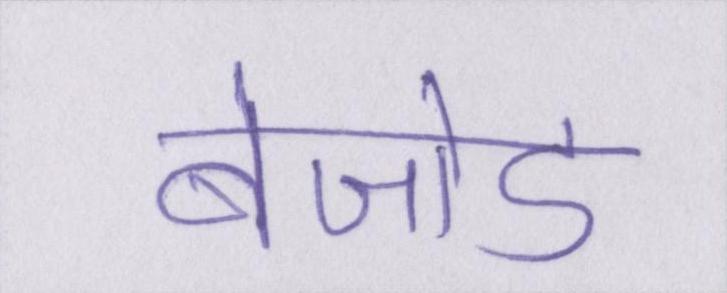 बेजोड